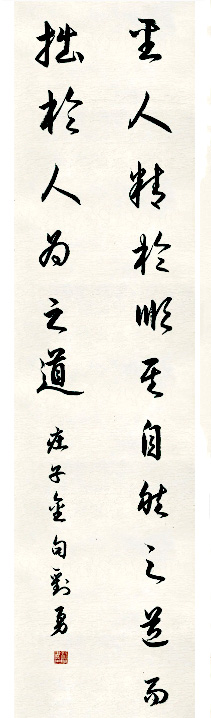 聖人精於順其自然之道而
拙於人為之道
莊子金句劉勇